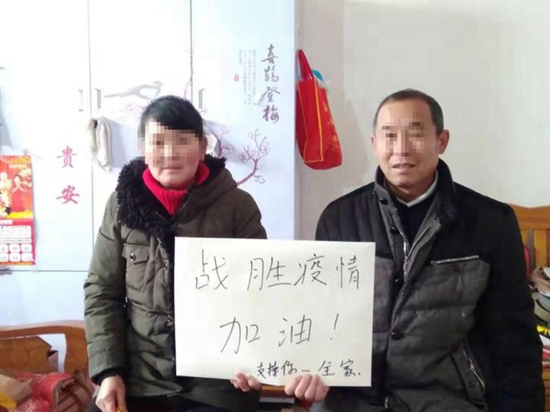 喜鹊登梅
贵安
战胜疫情
加油！
支持你一全家